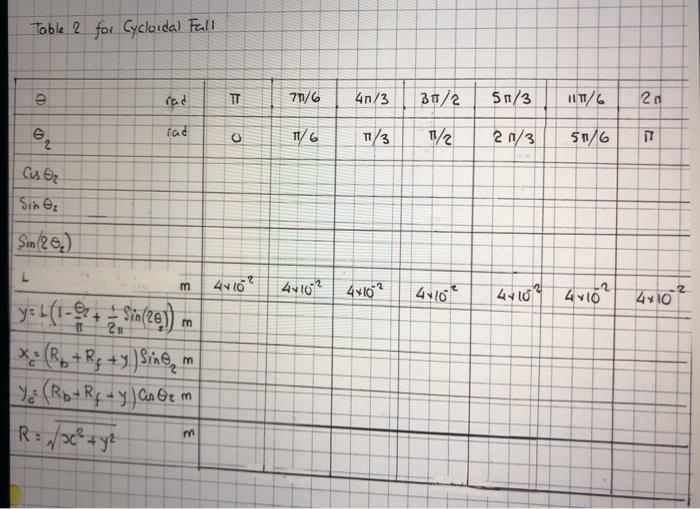 Table 2 for Cycloidal Fall
θ rad π 7π/6 4π/3 3π/2 5π/3 11π/6 2π
θ₂ rad 0 π/6 π/3 π/2 2π/3 5π/6 π
Cos θ₂
Sin θ₂
Sin(2θ₂)
L m 4×10⁻² 4×10⁻² 4×10⁻² 4×10⁻² 4×10⁻² 4×10⁻² 4×10⁻²
y = L(1 - θ₂/π + 1/2π Sin(2θ₂)) m
x_c = (R_b + R_f + y) Sin θ₂ m
y_c = (R_b + R_f + y) Cos θ₂ m
R = √x² + y² m